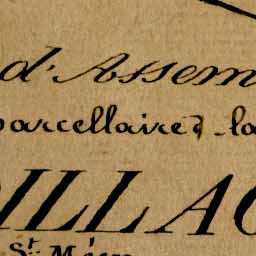 d'Assem
parcellaires la
ILLAC
St Méen